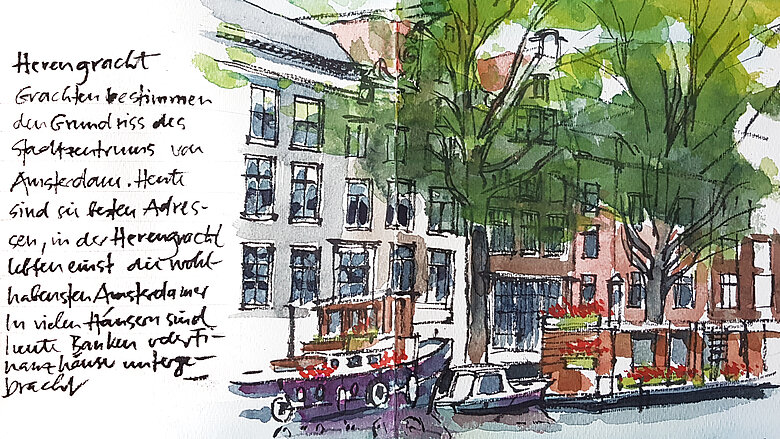 Herengracht
Grachten bestimmen
den Grundriss des
Stadtzentrums von
Amsterdam. Heute
sind sie besten Adres-
sen, in der Herengracht
lebten einst die wohl-
habensten Amsterdamer
In vielen Häusern sind
heute Banken oder Fi-
nanzhäuser unterge-
bracht